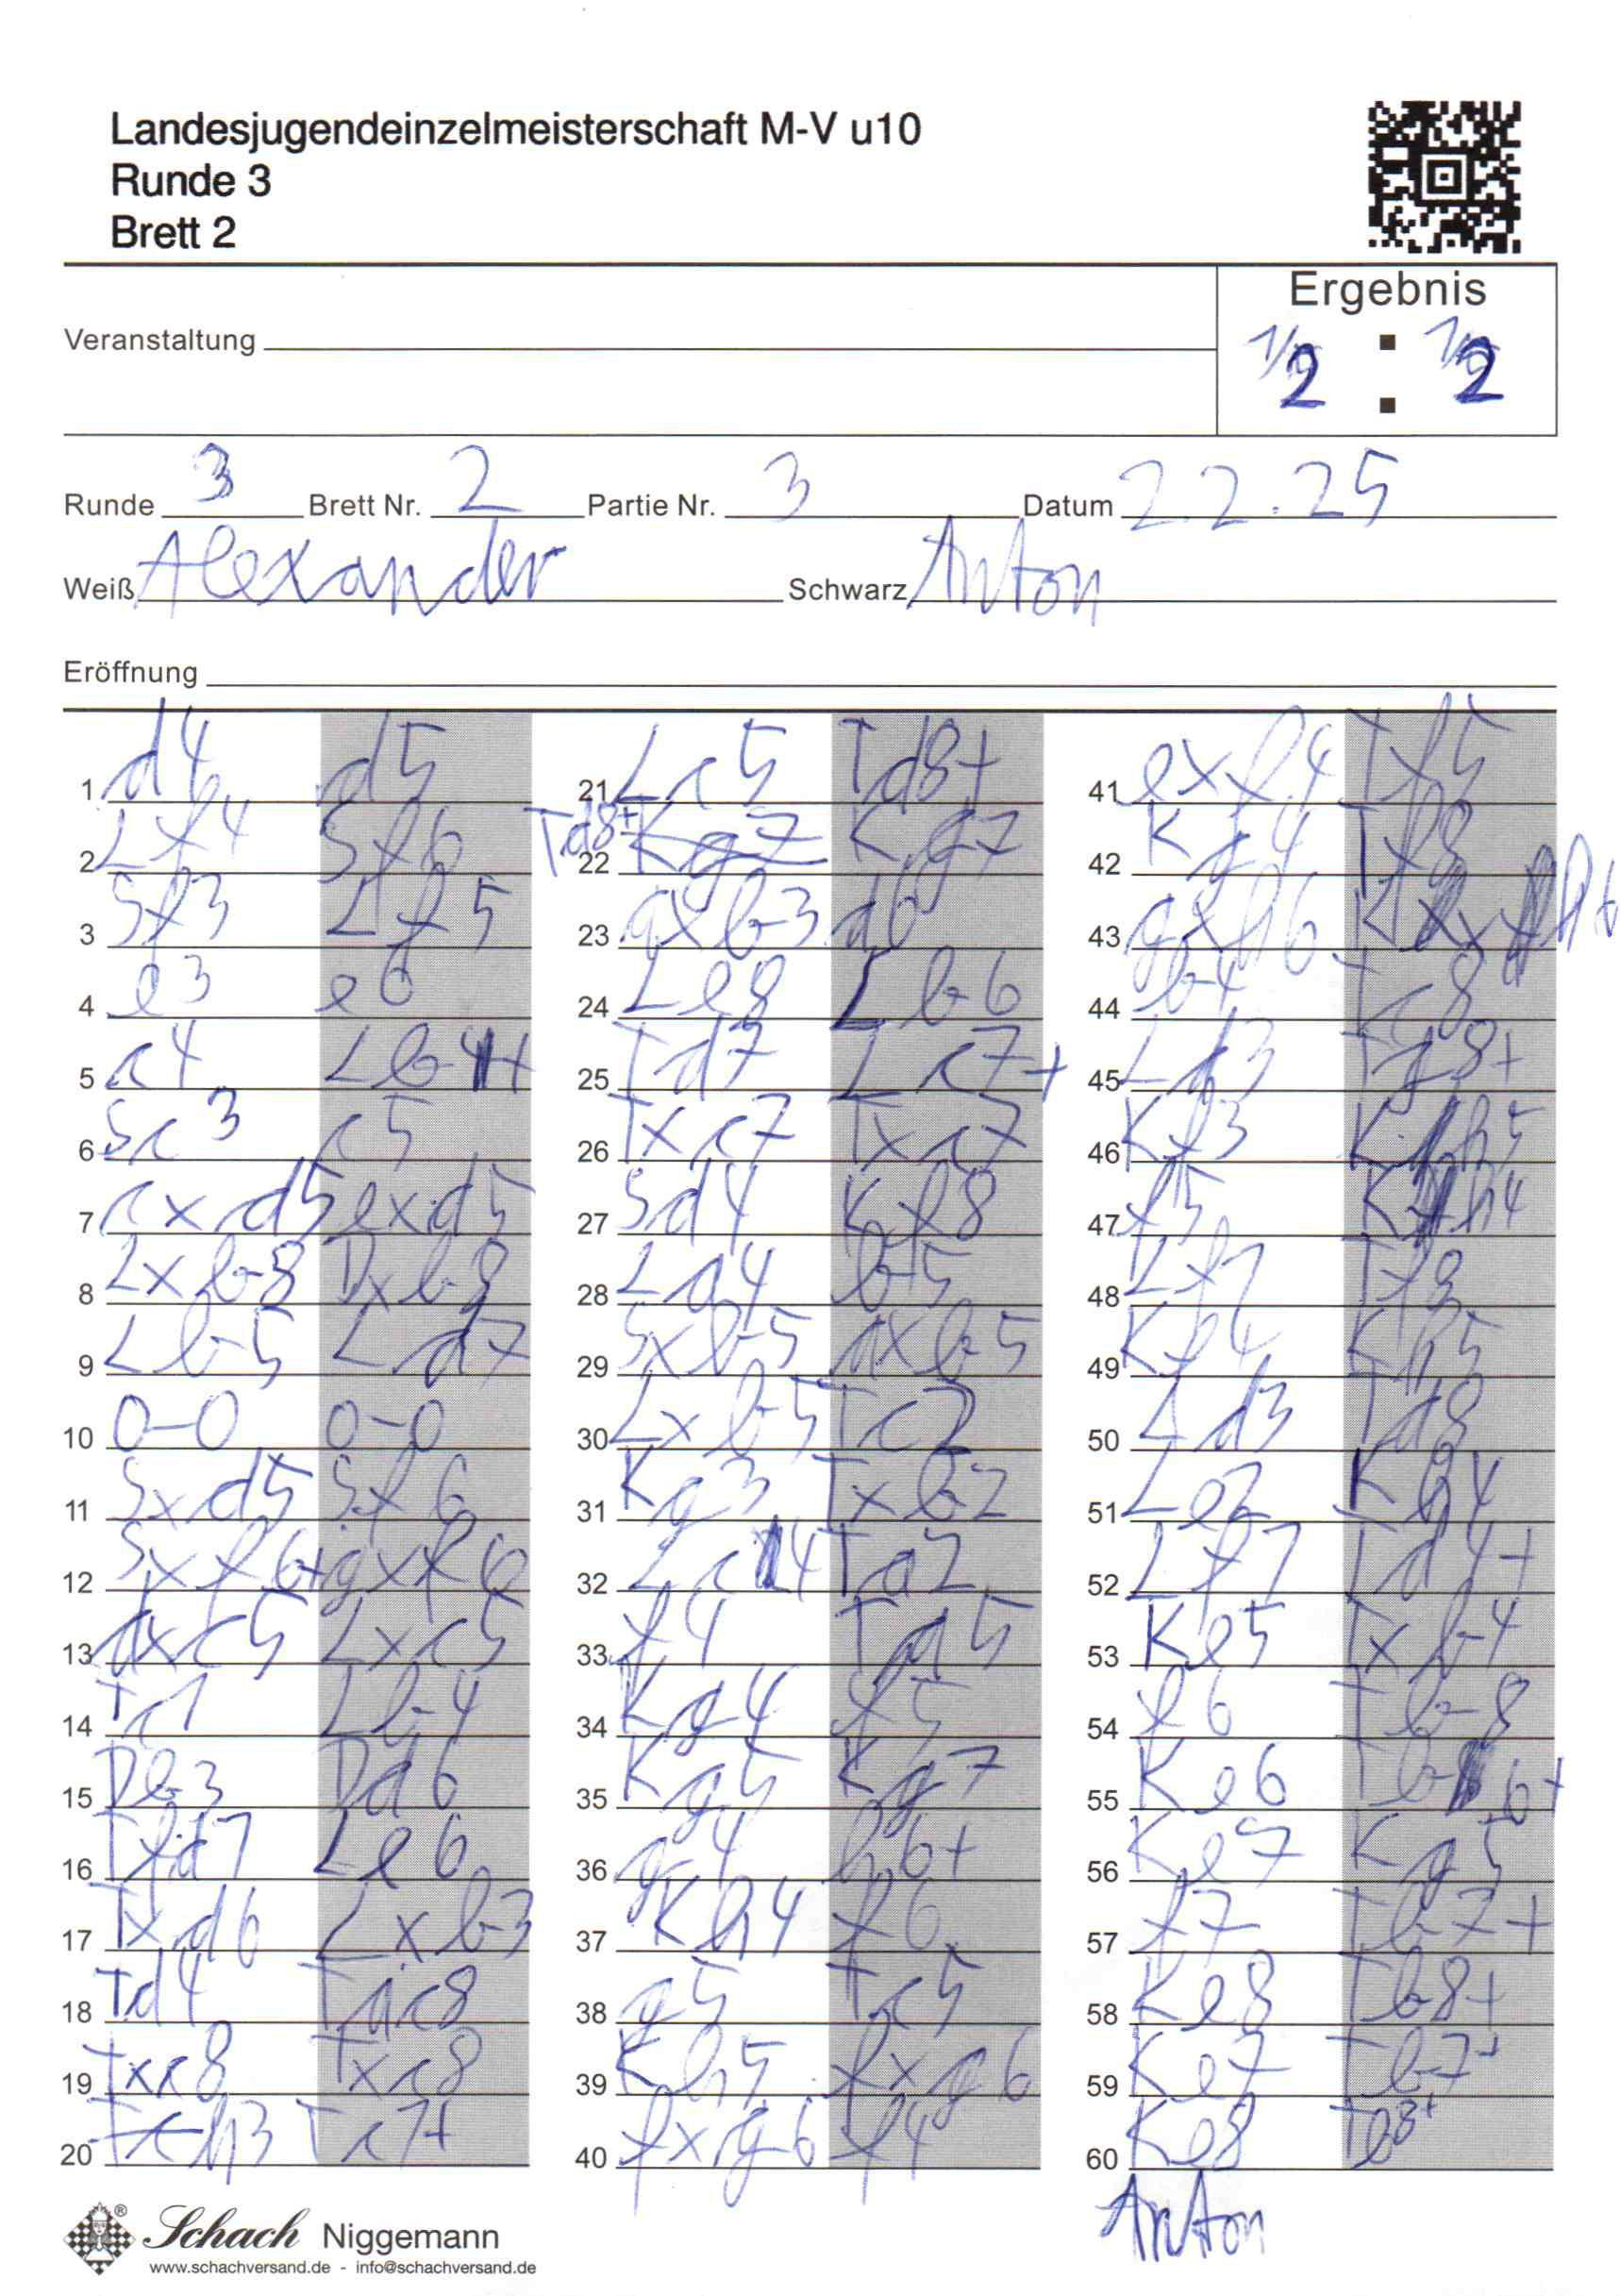 Landesjugendeinzelmeisterschaft M-V u10
Runde 3
Brett 2
Ergebnis
Veranstaltung
1/2 : 1/2
Runde 3 Brett Nr. 2 Partie Nr. 3 Datum 2.2.25
Weiß Alexander Schwarz Anton
Eröffnung
1 d4 d5
2 Lf4 Sf6
3 Sf3 Lf5
4 e3 e6
5 c4 Lb4+
6 Sc3 c5
7 cxd5 exd5
8 Lxb8 Dxb8
9 Lb5 Ld7
10 0-0 0-0
11 Sxd5 Sf6
12 Sxf6+ gxf6
13 dxc5 Lxc5
14 Tc1 Lb4
15 Db3 Dd6
16 Tfd1 Le6
17 Txd6 Lxb3
18 Td4 Tac8
19 Txc8 Txc8
20 h3 Tc1+
21 Lc5 Td8+
22 Td8+ Kg7
23 axb3 a6
24 Le8 Lb6
25 Td7 Lc7+
26 Txc7 Txc7
27 Sd4 Kf8
28 La4 b5
29 Sxb5 axb5
30 Lxb5 Tc2
31 Kg3 Txb2
32 Lc4 Ta2
33 f4 Ta5
34 Kg4 f5
35 Kg5 Kg7
36 g4 h6+
37 Kh4 f6
38 g5 Tc5
39 Kh5 fxg6
40 fxg6 f4
41 exf4 Tf5
42 Kg4 Tf8
43 gxh6 Kxh6
44 b4 Tc8
45 Ld3 Tg8+
46 Kf3 Kh5
47 f5 Kh4
48 Lf1 Tf8
49 Kf4 Kh5
50 Ld3 Td8
51 Le2 Kh4
52 Lf1 Td4+
53 Ke5 Txb4
54 f6 Tb8
55 Ke6 Tb6+
56 Ke7 Kg5
57 f7 Tb7+
58 Ke8 Tb8+
59 Ke7 Tb7+
60 Ke8 Tb8+
Anton
Schach Niggemann
www.schachversand.de - info@schachversand.de